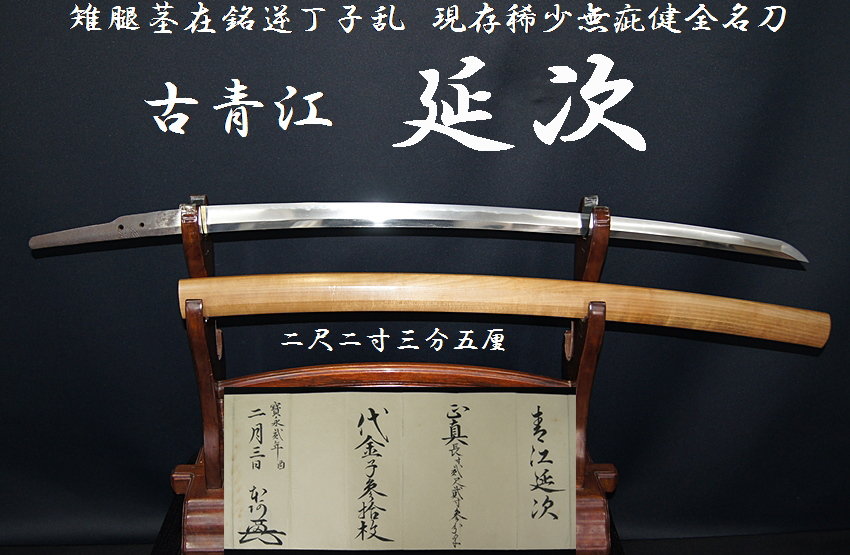 雉腿茎在銘逆丁子乱 現存稀少無疵健全名刀
古青江 延次
二尺二寸三分五厘
青江延次
正真長サ貳尺貳寸参分半
代金子参拾枚
寳永貳年酉
二月三日 本阿